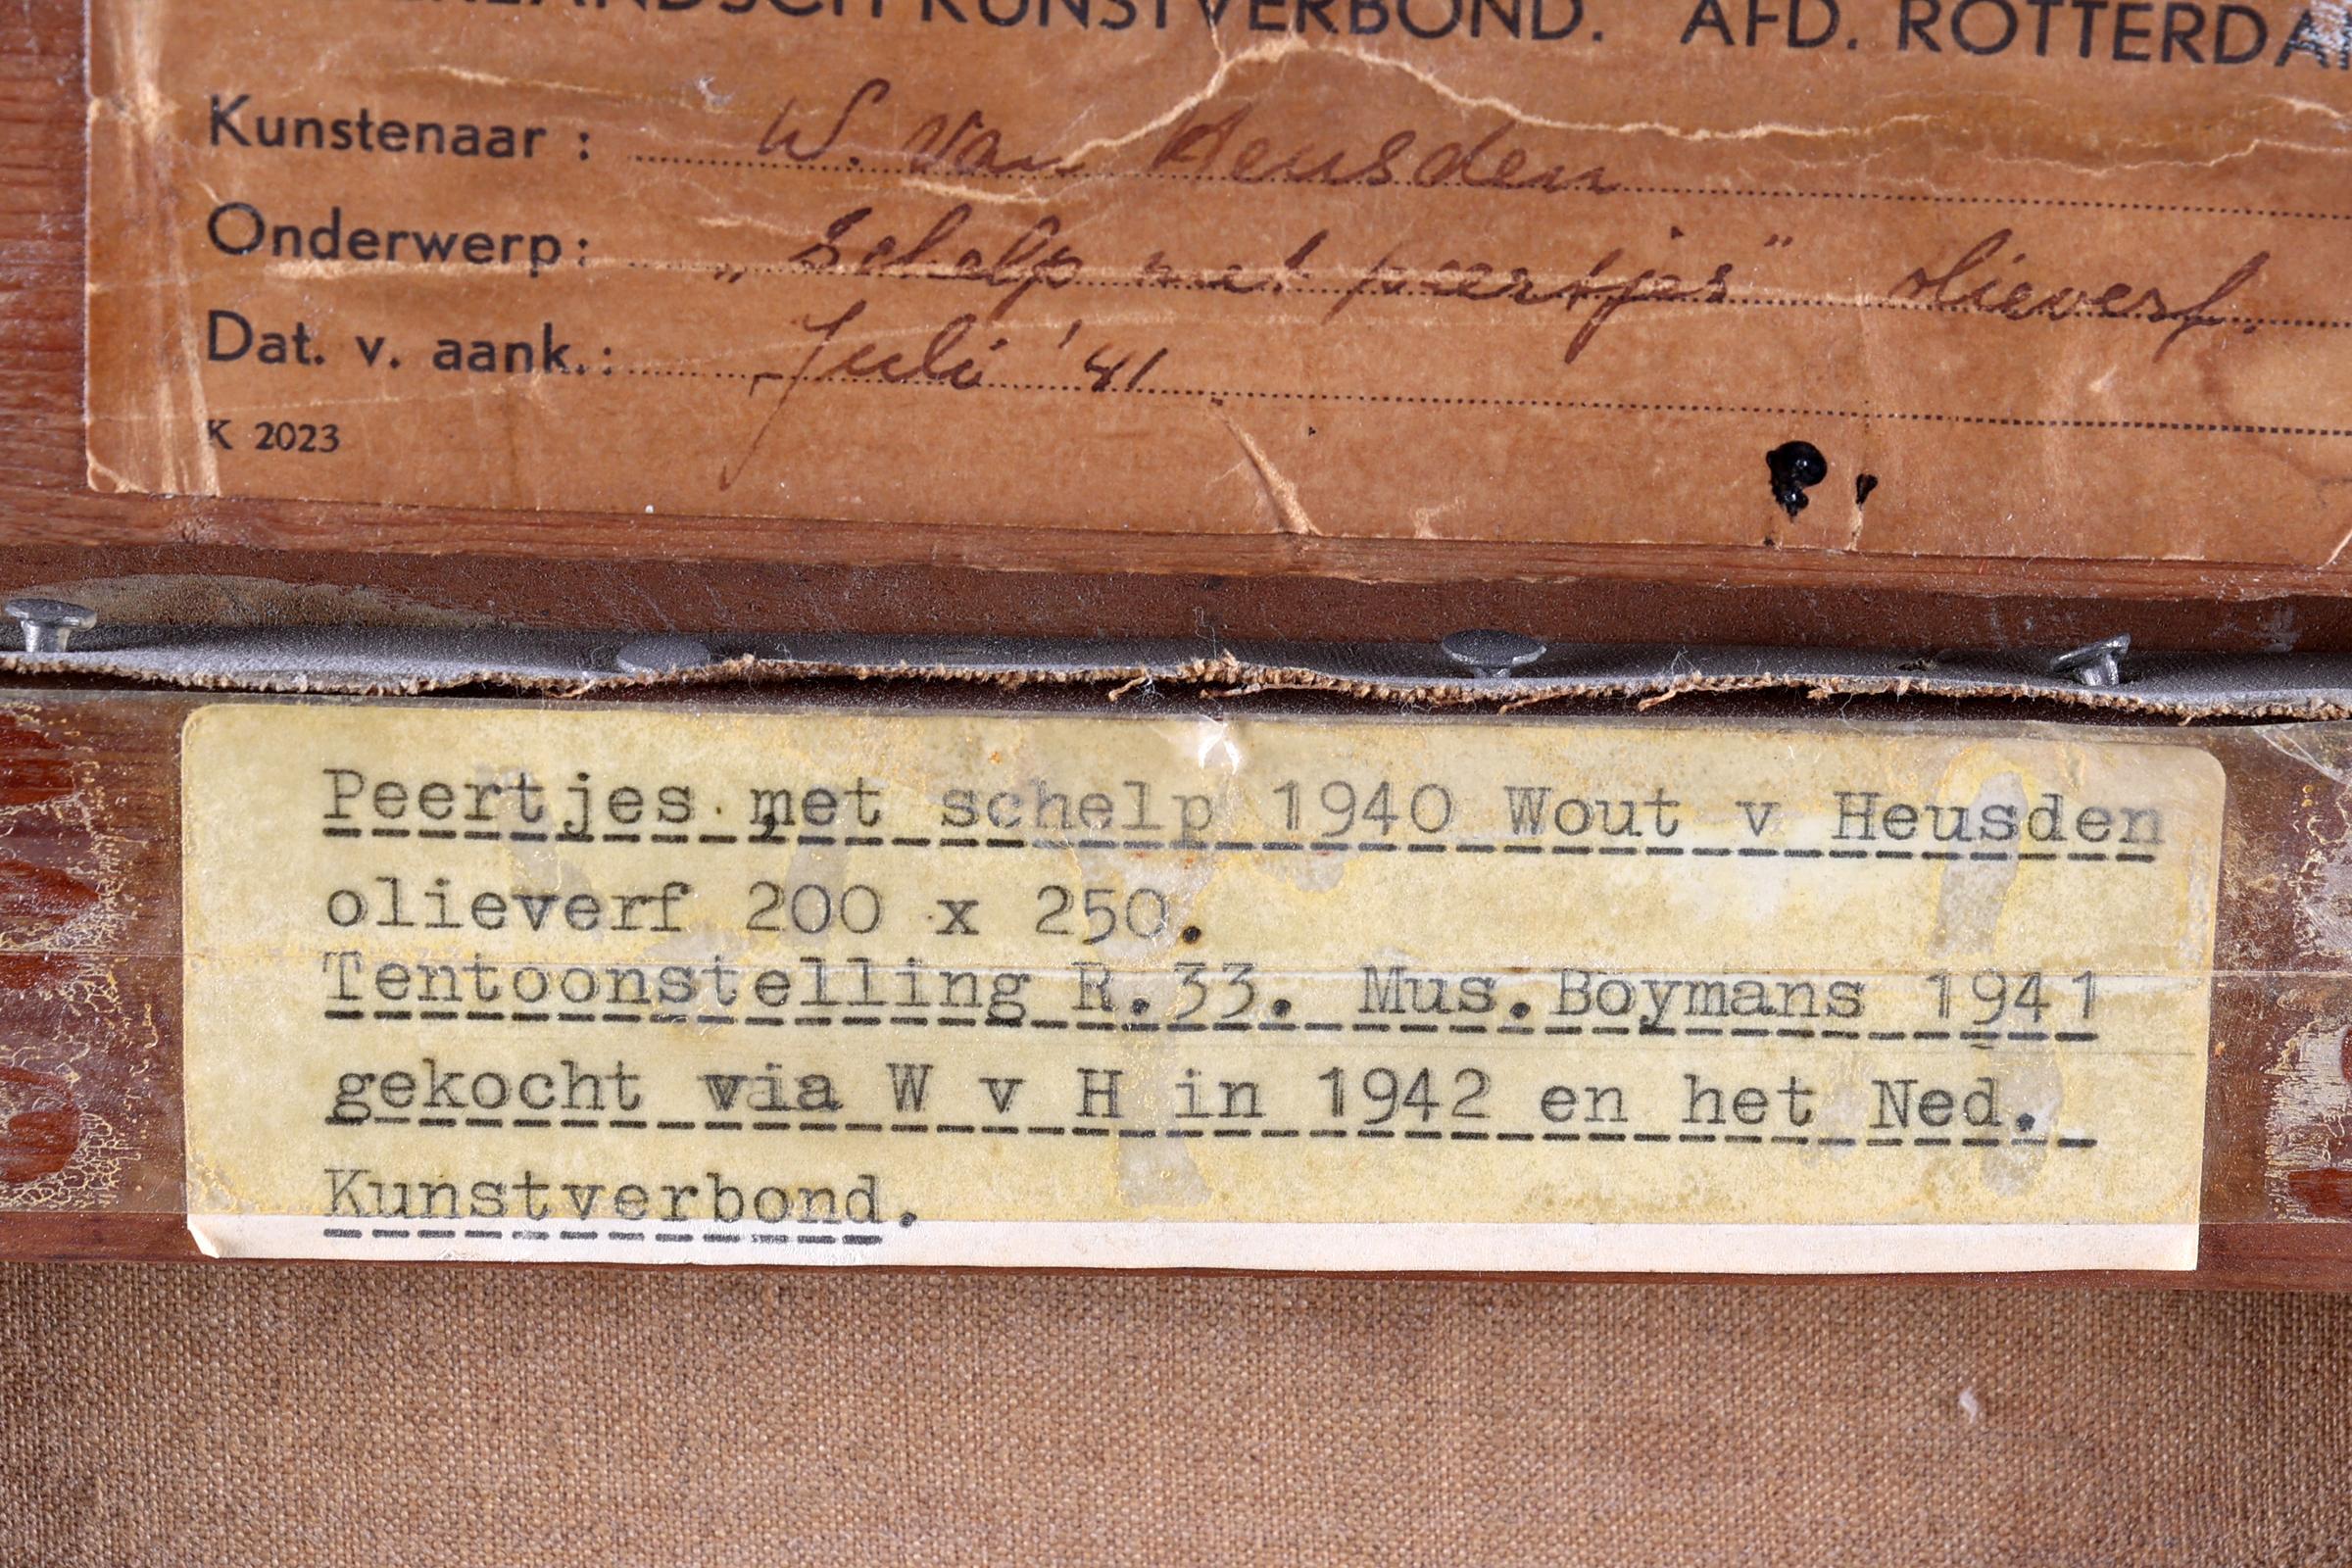 KUNSTVERBOND. AFD. ROTTERDA
Kunstenaar : W. Van Heusden
Onderwerp: „Schelp met peertjes" olieverf.
Dat. v. aank.: Juli '41
K 2023
Peertjes met schelp 1940 Wout v Heusden
olieverf 200 x 250.
Tentoonstelling R.33. Mus.Boymans 1941
gekocht via W v H in 1942 en het Ned.
Kunstverbond.